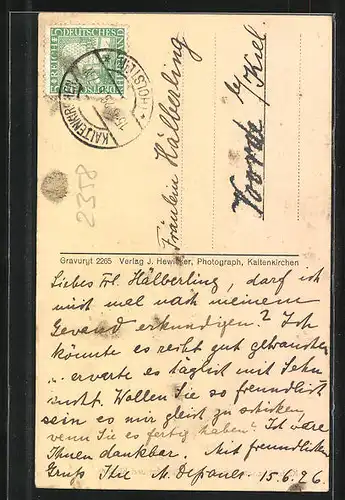 DEUTSCHES REICH
KALTENKIRCHEN
(HOLSTEIN)
Fräulein Hälberling
Voorde
b/Kiel
2358
Gravuryt 2265 Verlag J. Hewicker, Photograph, Kaltenkirchen
Liebes Frl. Hälberling, darf ich
mich mal nach meinem
Gewand erkundigen? Ich
könnte es recht gut gebrauchen
erwarte es täglich mit Sehn
sucht. Wollen Sie so freundlich
sein es mir gleich zu schicken,
wenn Sie es fertig haben? Ich wäre
Ihnen dankbar. Mit freundlichen
Gruß Ihre M. 15.6.26.